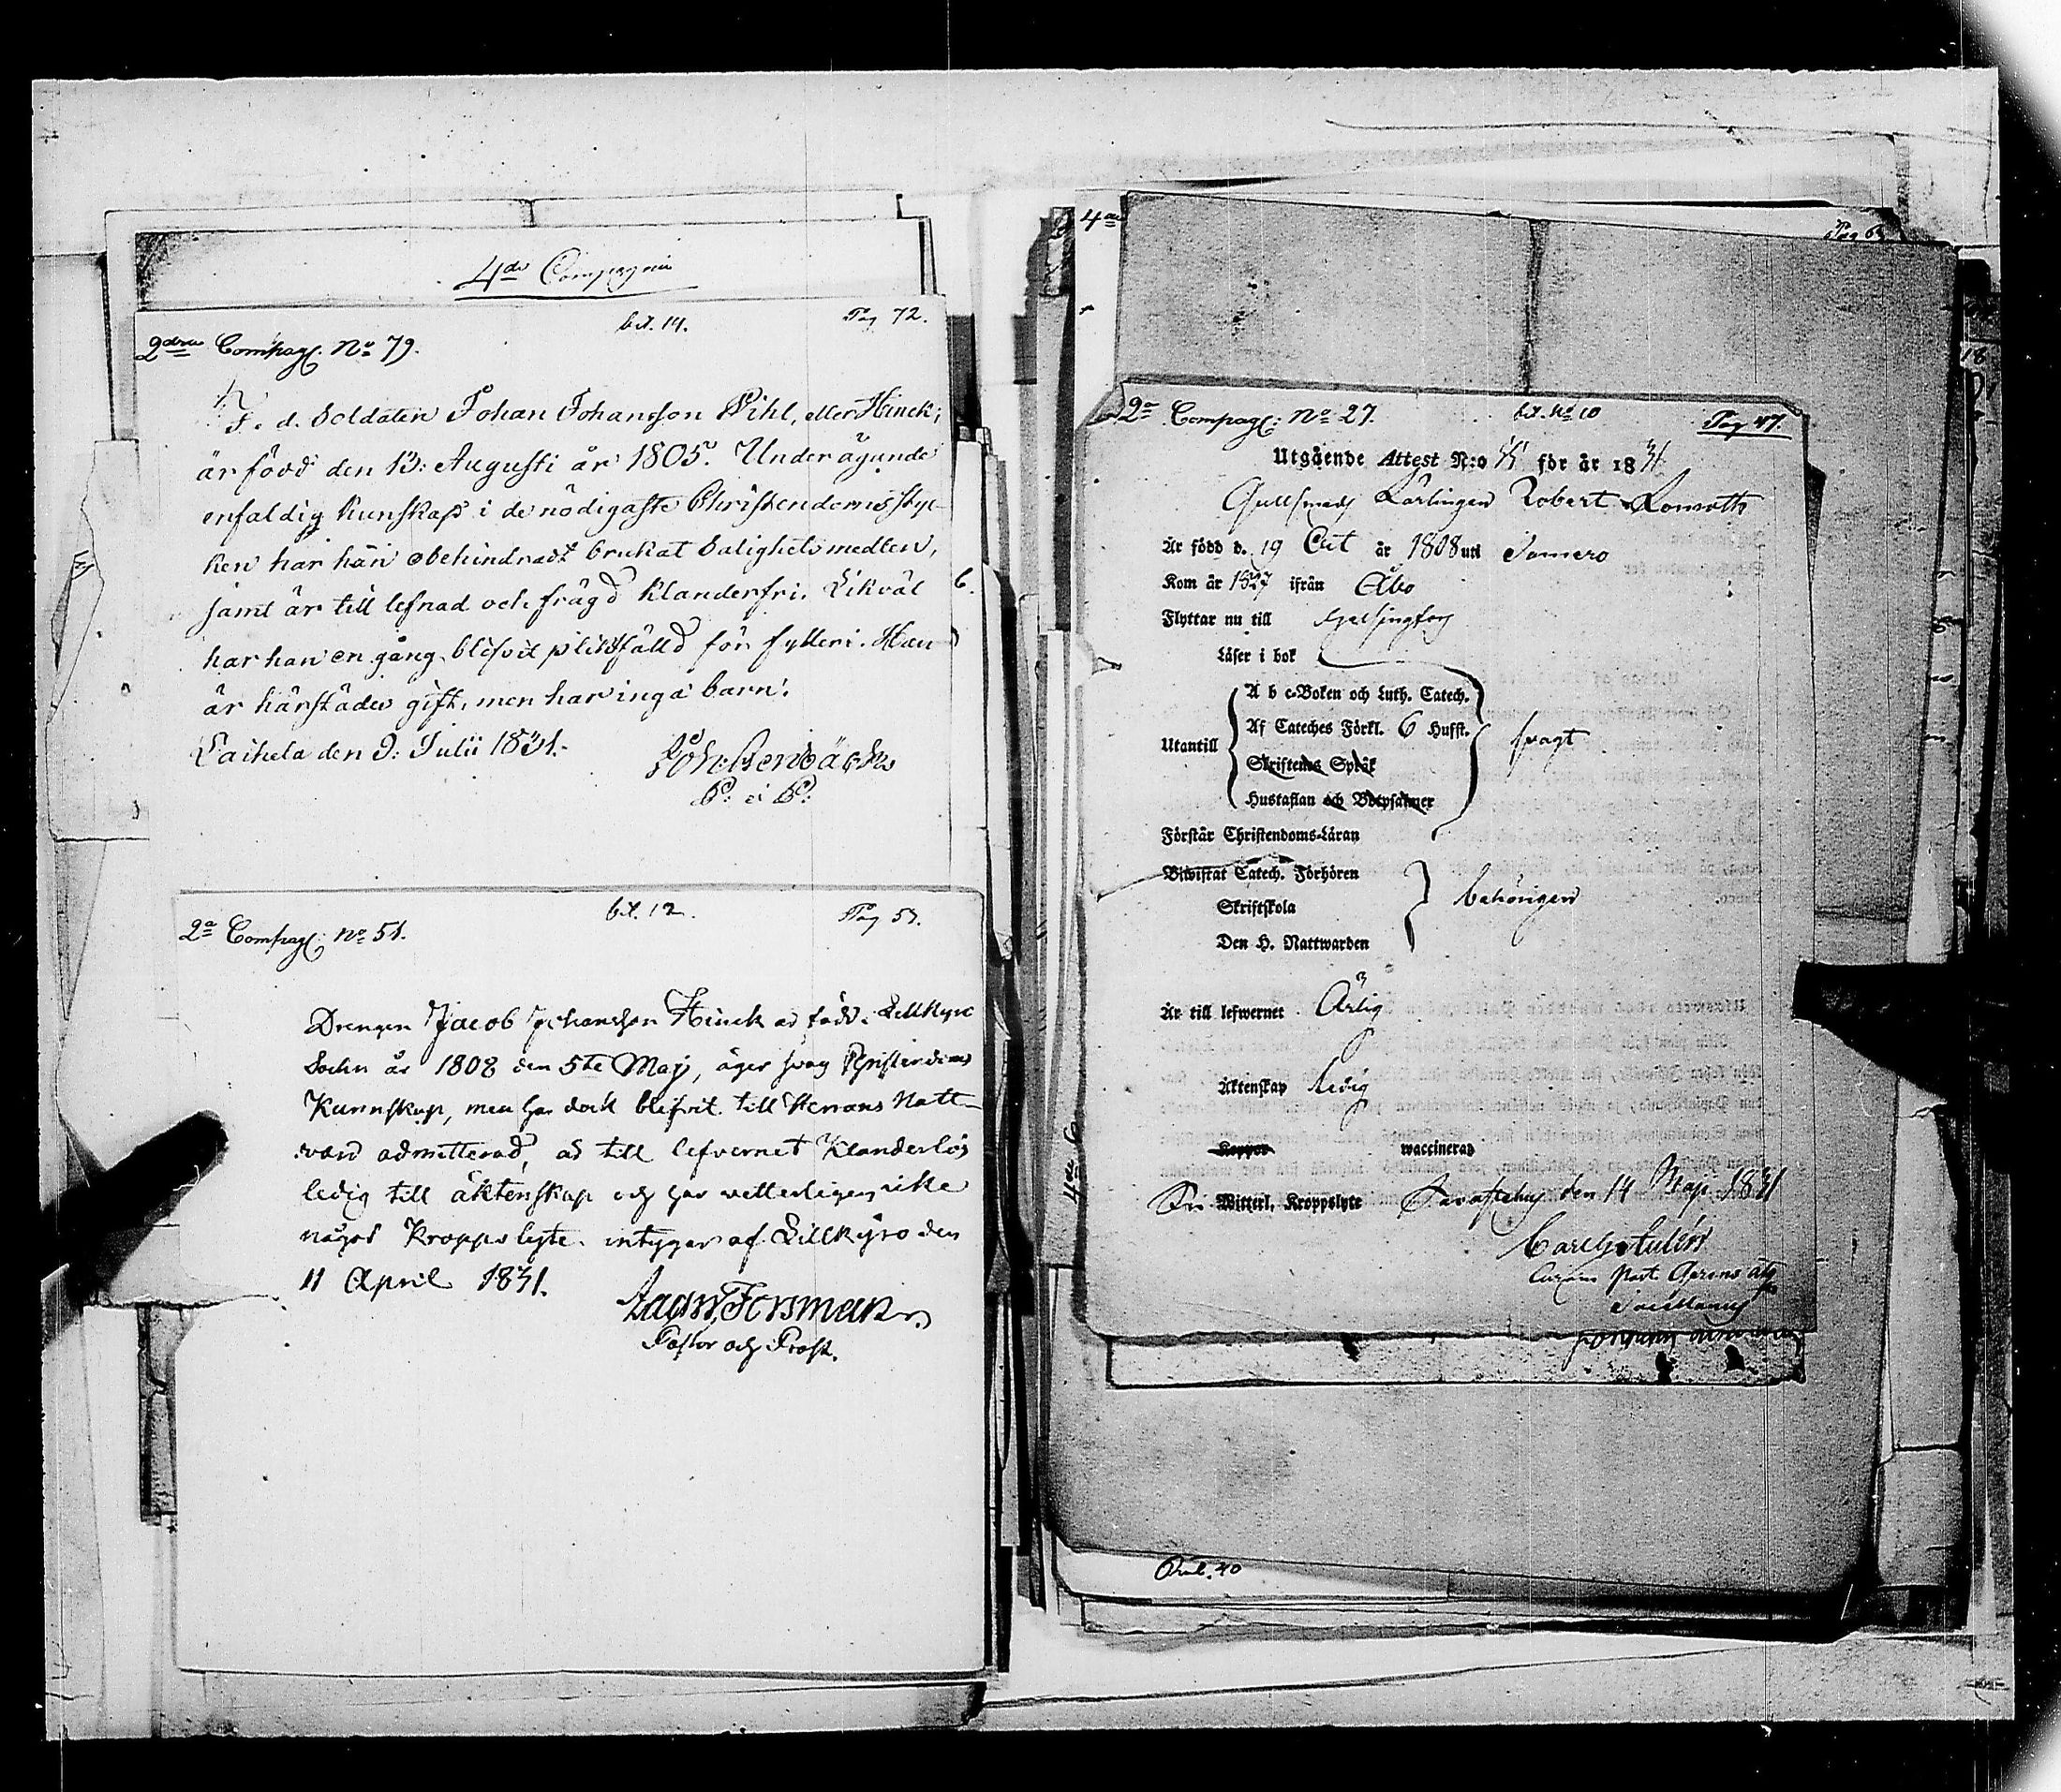 4de Compagnie
2dra Compag: No 79.
bil. 14.
Pag 72.
F. d. Soldaten Johan Johansson Pihl, eller Hinck;
är född den 13: Augusti år 1805. Under ägande
enfaldig kunskap i de nödigaste Christendomsstyc-
ken har han obehindradt brukat Salighetsmedlen,
samt är till lefnad och frägd klanderfri. Likväl
har han en gång blifvit pliktfälld för fylleri. Han
är härstädes gift, men har inga barn.
Laihela den 9: Julii 1831.
P: ei P:
2a Compag: No 51.
bil. 12.
Pag 57.
Drengen Jacob Johansson Hinck är född i Lillkyro
Sochn år 1808 den 5te Maj, äger svag Christendoms
Kunnskap, men har dock blifvit till Herrans Natt-
vard admitterad, är till lefvernet Klanderlös
ledig till äktenskap och har vetterligen icke
något Kroppslyte. intygar af Lillkyro den
11 April 1831.
Forsman
Pastor och Prost.
6.
4de
Pag 6
2a Compag: No 27.
bil. No 10
Pag 47.
Utgående Attest N:o för år 1831
Gullsmeds Lärlingen Robert
Är född d. 19 Oct år 1808 uti Somero
Kom år 1827 ifrån Åbo
Flyttar nu till Helsingfors
Läser i bok
Utantill
A b c-Boken och Luth. Catech.
Af Cateches Förkl. 6 Hufst.
Skriftenes Språk
Hustaflan och Botpsalmer
svagt
Förstår Christendoms-Läran
Biwistat Catech. Förhören
Skriftskola
Den H. Nattwarden
behörigen
Är till lefwernet Ärlig
Äktenskap Ledig
Koppor waccinerad
Fri Witterl. Kroppslyte Tavastehus den 14 Maji 1831
Carl G
Pag. 40